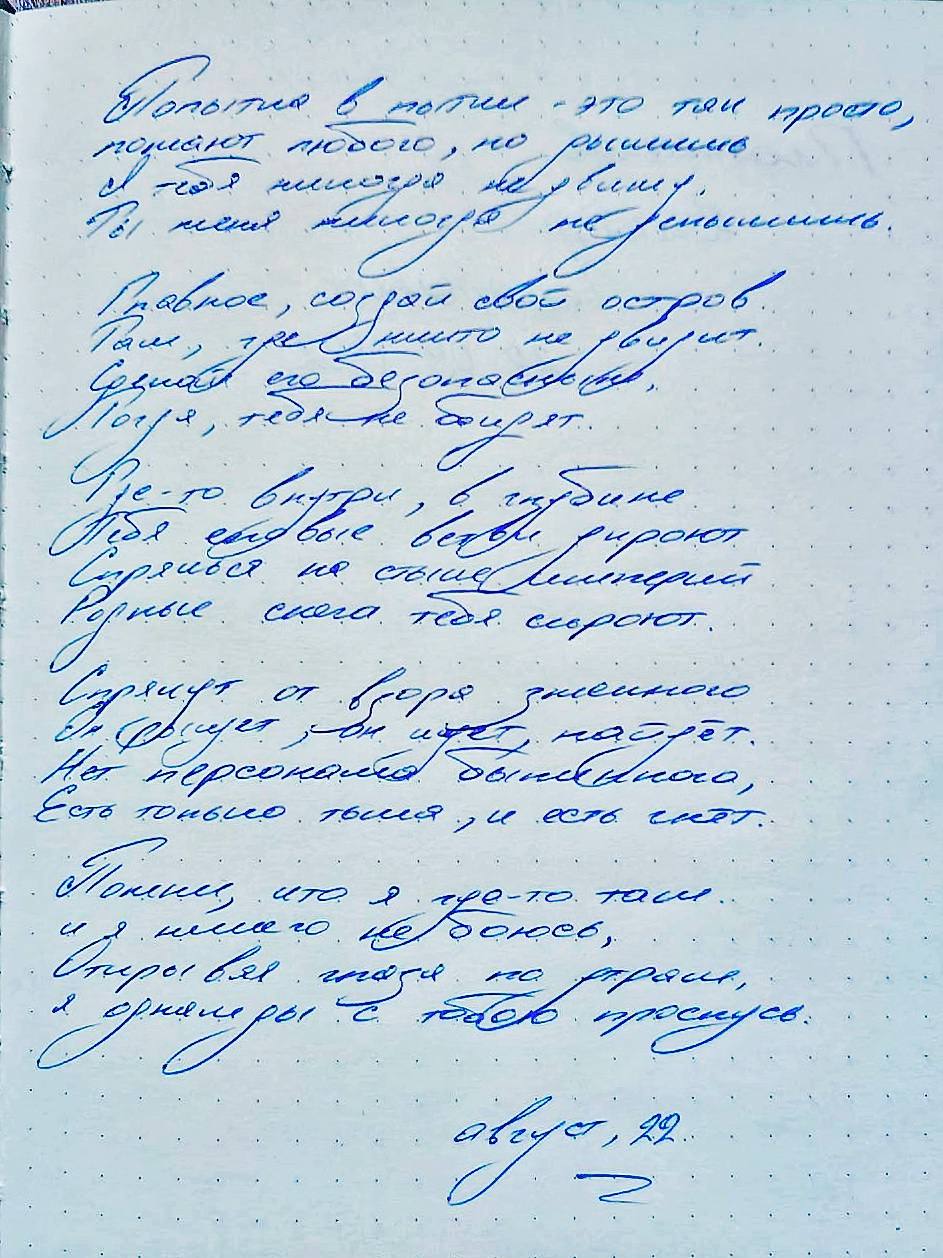 Попытка в пытки - это так просто,
поймают любого, но дышишь
Я тебя никогда не увижу,
Ты меня никогда не услышишь.
Главное, создай свой остров
Там, где никто не увидит.
Сделай его безопасным,
Тогда, тебя не обидят.
Где-то внутри, в глубине
Тебя еловые ветви укроют
Спрячься на стыке империй
Родные снега тебя скроют.
Спрячут от взора змеиного
Он рыщет, он ищет, найдёт.
Нет персонажа былинного,
Есть только тьма, и есть гнёт.
Помни, что я где-то там
и я ничего не боюсь,
Открывая глаза по утрам,
я однажды с тобою проснусь.
август, 22